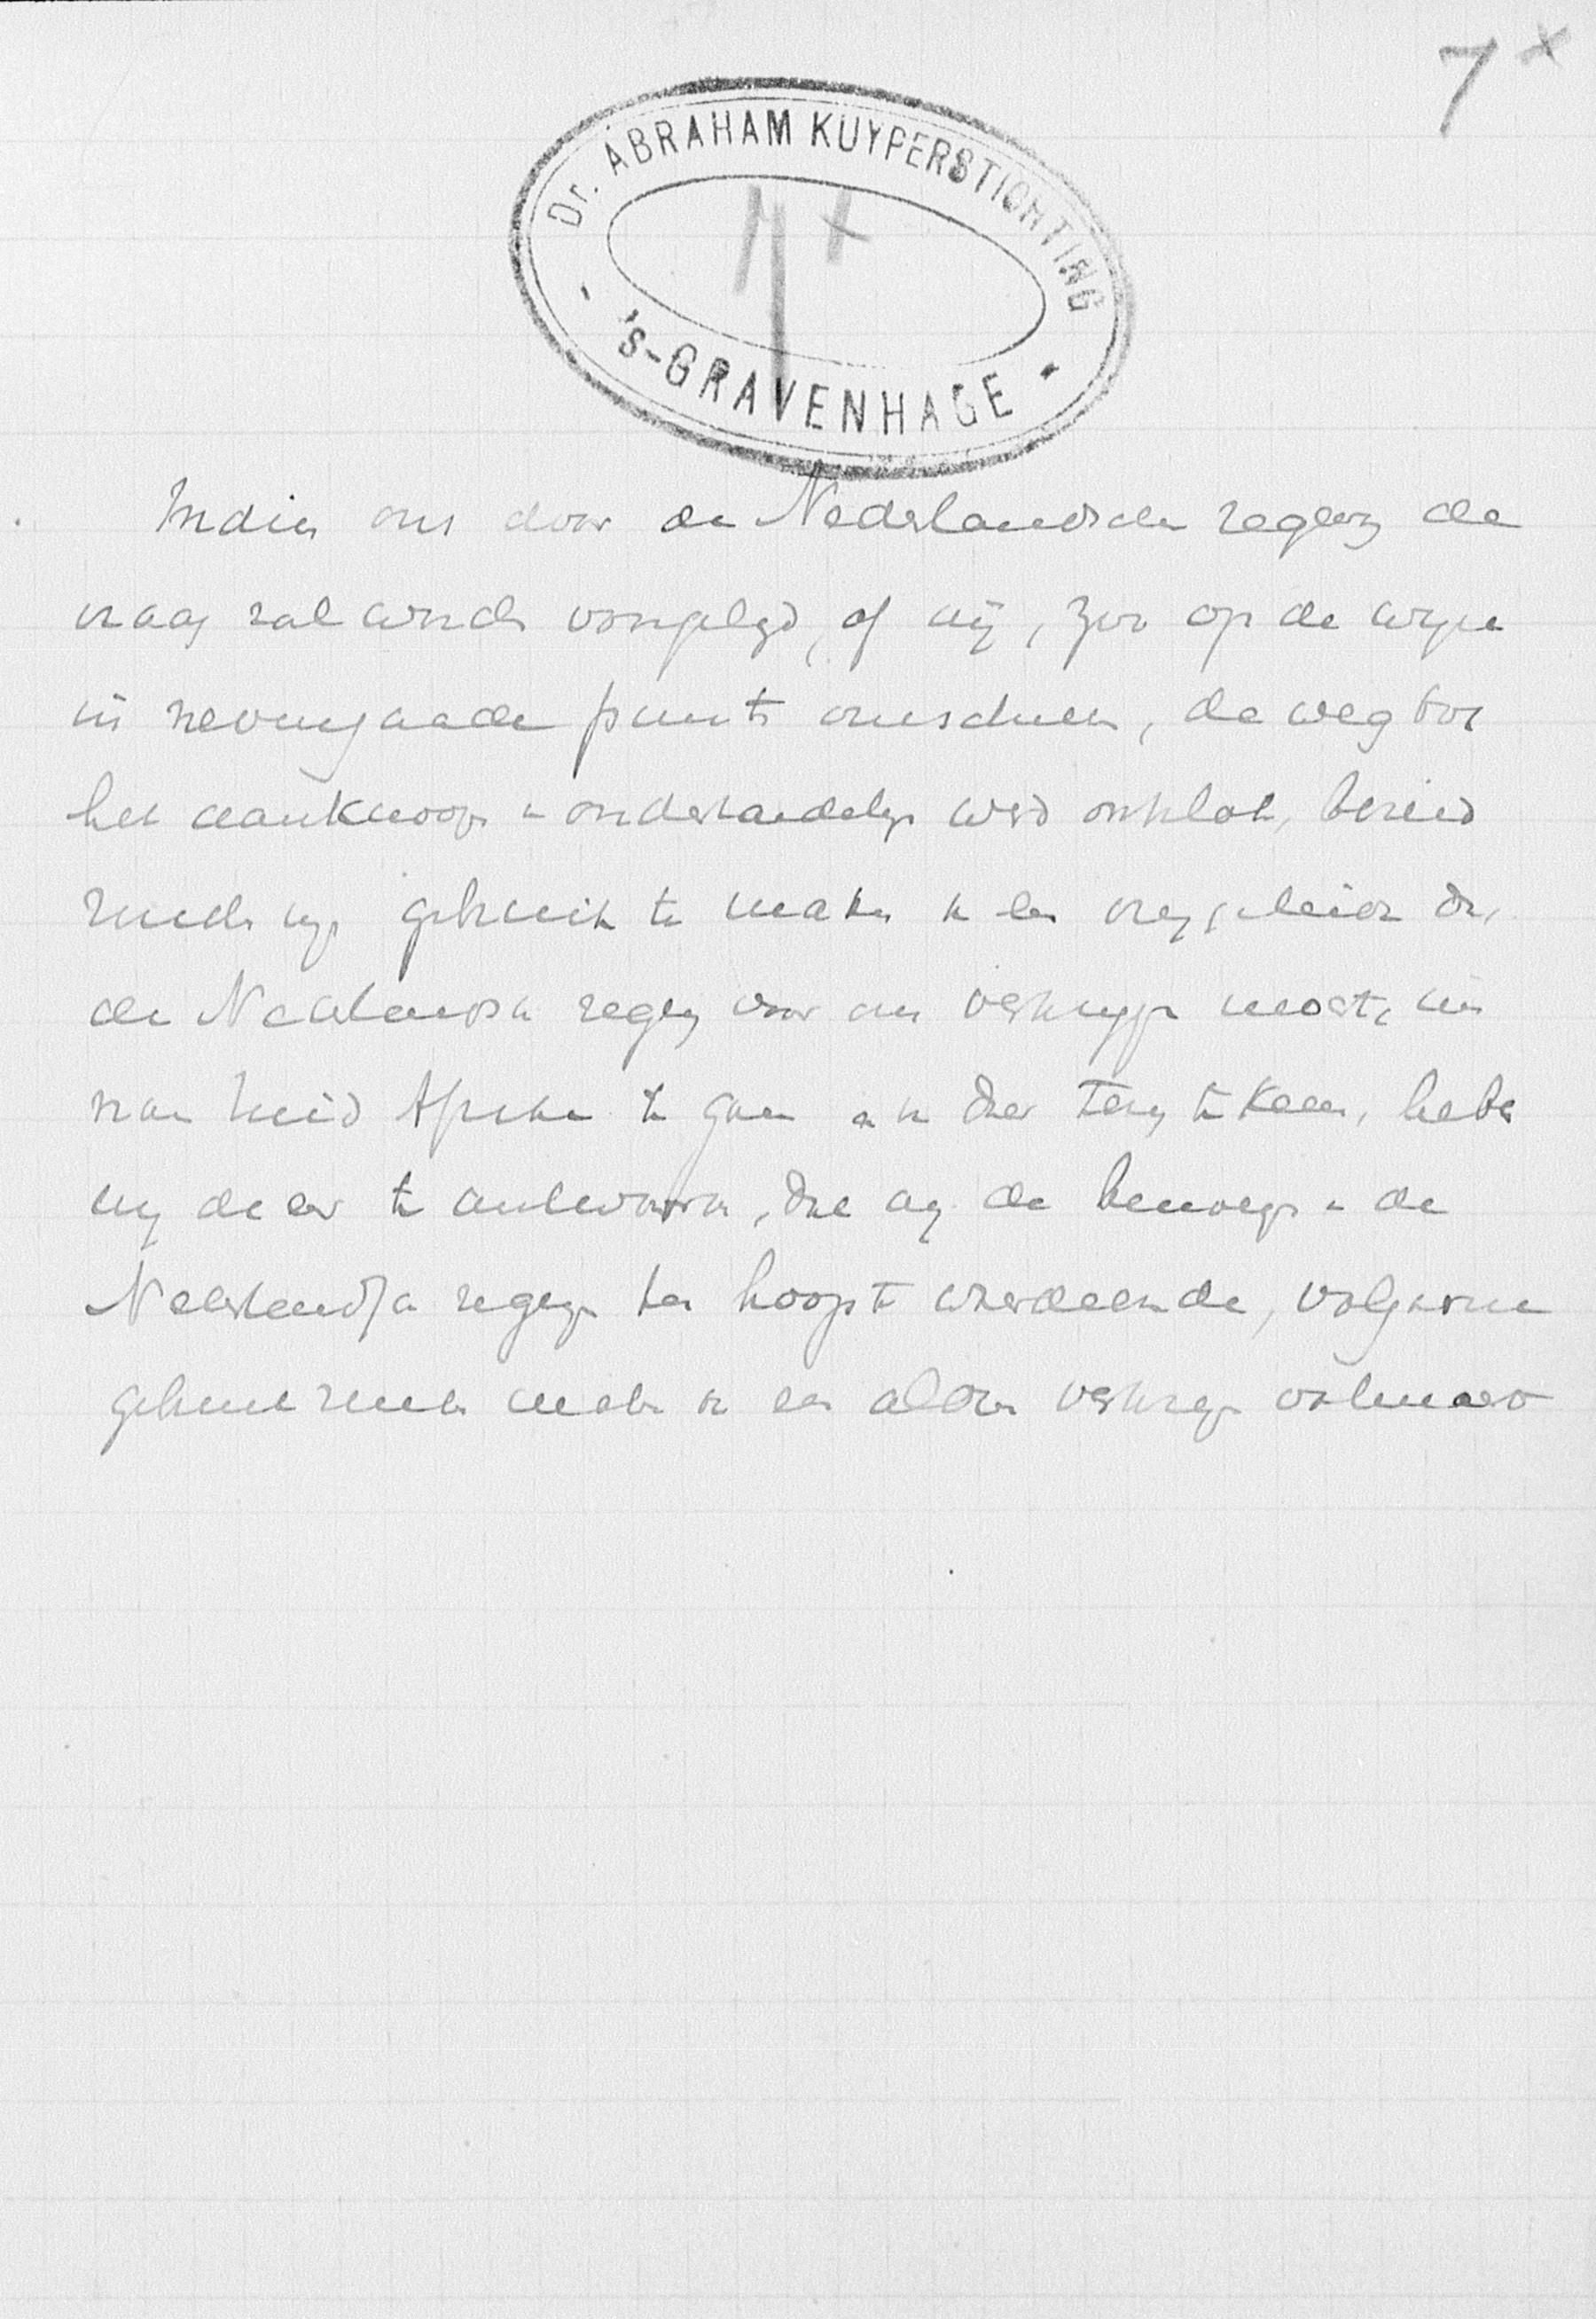 7 x
Dr. ABRAHAM KUYPERSTICHTING
'S-GRAVENHAGE
Indien ons door de Nederlandsche regering de
vraag zal worden voorgelegd, of wij, zoo op de wijze
in nevengaande punten omschreven, de weg tot
het aanknoopen van onderhandelingen werd ontsloten, bereid
zouden zijn gebruik te maken van een vrijgeleide dat
de Nederlandsche regering voor ons verkrijgen mocht, om
naar Zuid Afrika te gaan en van daar terug te keeren, hebben
wij de eer te antwoorden, dat wij de bemoeiingen van de
Nederlandsche regering ten hoogste waardeerende, volgaarne
gebruik zouden maken van een aldus verkregen